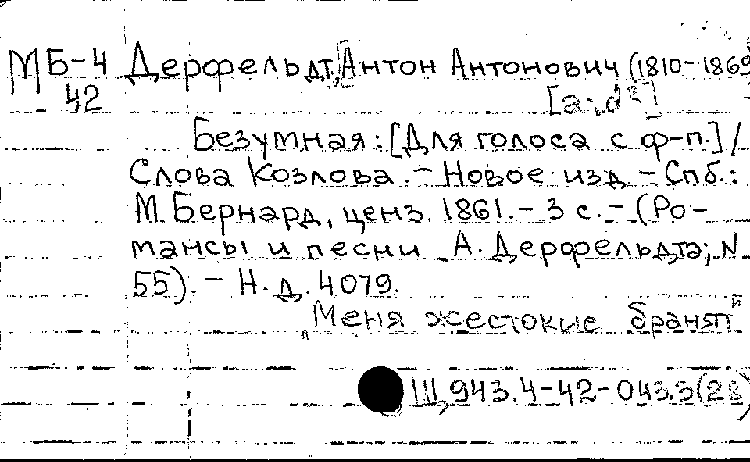 МБ-4 Дерфельдт, Антон Антонович (1810-1869
42 [a:, d²]
Безумная: [Для голоса с ф-п.] /
Слова Козлова. - Новое изд - Спб.:
М. Бернард, ценз. 1861. - 3 с. - (Ро-
мансы и песни А. Дерфельдта; N
55). - Н. д. 4079.
„Меня жестокие бранят"
Ш, 943.4-42-043.3(2